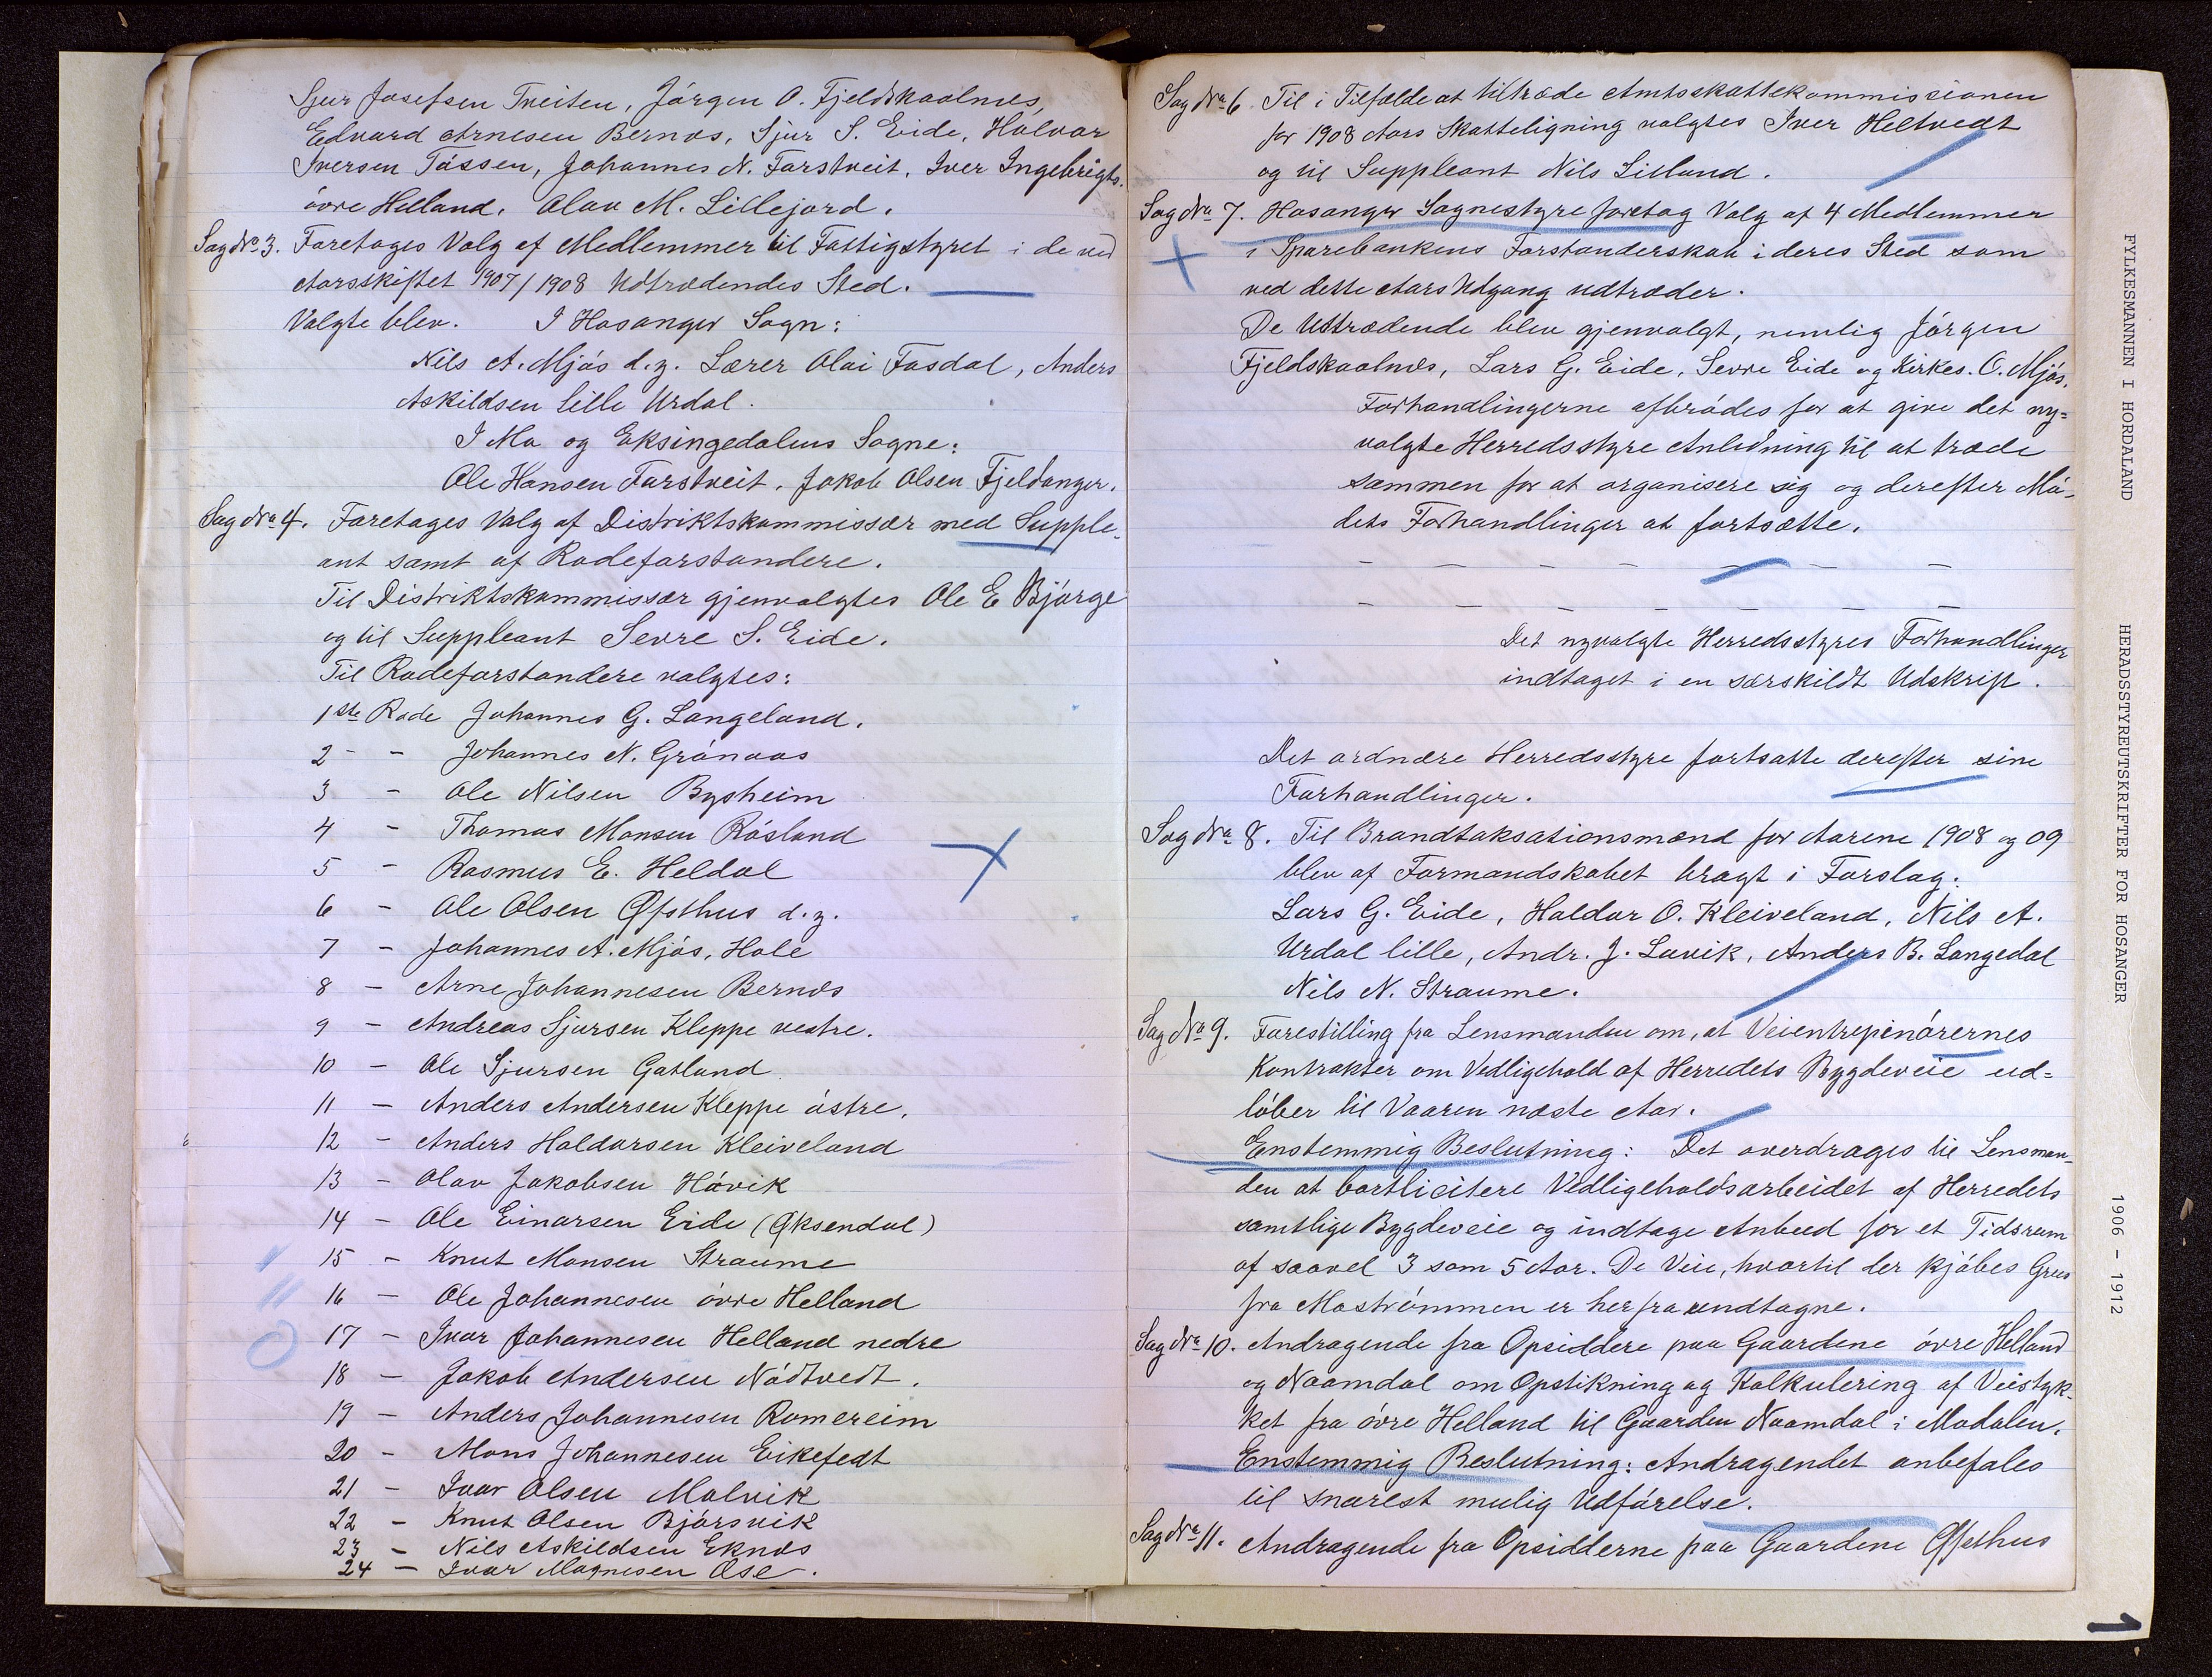 Sjur Josefsen Tveiten, Jørgen O. Fjeldskaalnes,
Edvard Arnesen Bernes, Sjur S. Eide, Halvor
Iversen Tåssen, Johannes N. Farstveit, Iver Ingebrigts.
øvre Helland. Olav M. Lillejord.
Sag No 3. Foretages Valg af Medlemmer til Fattigstyret i de ved
Aarsskiftet 1907/1908 Udtrædendes Sted.
Valgte blev. I Hosanger Sogn:
Nils A. Mjøs d.y. Lærer Olai Fosdal, Anders
Askildsen lille Urdal.
I Mo og Eksingedalens Sogne:
Ole Hansen Farstveit. Jakob Olsen Fjeldanger.
Sag No 4. Foretages Valg af Distriktskommissær med Supple-
ant samt af Rodeforstandere.
Til Distriktskommissær gjenvalgtes Ole E Bjørge
og til Suppleant Sevre S. Eide.
Til Rodeforstandere valgtes:
1ste Rode Johannes G. Langeland.
2 - - Johannes N. Grønaas
3 - Ole Nilsen Bysheim
4 - Thomas Monsen Røsland
5 - Rasmus E. Heldal
6 - Ole Olsen Øfsthus d.y.
7 - Johannes A. Mjøs, Hole
8 - Arne Johannesen Bernes
9 - Andreas Sjursen Kleppe vestre.
10 - Ole Sjursen Gatland
11 - Anders Andersen Kleppe østre.
12 - Anders Haldorsen Kleiveland
13 - Olav Jakobsen Høvik
14 - Ole Einarsen Eide (Øksendal)
15 - Knut Monsen Straume
16 - Ole Johannesen øvre Helland
17 - Ivar Johannesen Helland nedre
18 - Jakob Andersen Nødtvedt.
19 - Anders Johannesen Romereim
20 - Mons Johannesen Eikefedt
21 - Ivar Olsen Molvik
22 - Knut Olsen Bjørsvik
23 - Nils Askildsen Eknes
24 - Ivar Magnesen Ose.
Sag No 6. Til i Tilfælde at tiltræde Amtsskattekommissionen
for 1908 Aars Skatteligning valgtes Iver Heltvedt
og til Suppleant Nils Lilland.
Sag No 7. Hosanger Sognestyre foretog Valg af 4 Medlemmer
i Sparebankens Forstanderskab i deres Sted som
ved dette Aars Udgang udtræder.
De Udtrædende blev gjenvalgt, nemlig Jørgen
Fjeldskaalnes, Lars G. Eide, Sevre Eide og Kirkes. O. Mjøs.
Forhandlingerne afbrødes for at give det ny=
valgte Herredsstyre Anledning til at træde
sammen for at organisere sig og derefter Mø-
dets Forhandlinger at fortsætte.
Det nyvalgte Herredsstyres Forhandlinger
indtaget i en særskildt Udskrift.
Det ordnære Herredsstyre fortsatte derefter sine
Forhandlinger.
Sag No 8. Til Brandtaksationsmænd for Aarene 1908 og 09
blev af Formandskabet bragt i Forslag:
Lars G. Eide, Haldor O. Kleiveland, Nils A.
Urdal lille, Andr. J. Lavik, Anders B. Langedal
Nils N. Straume.
Sag No 9. Forestilling fra Lensmanden om, at Veientrepenørernes
Kontrakter om Vedligehold af Herredets Bygdeveie ud=
løber til Vaaren næste Aar.
Enstemmig Beslutning: Det overdrages til Lensman-
den at bortlicitere Vedligeholdsarbeidet af Herredets
samtlige Bygdeveie og indtage Anbud for et Tidsrum
af saavel 3 som 5 Aar. De Veie, hvortil der kjøbes Grus
fra Mostrømmen er herfra undtagne.
Sag No 10. Andragende fra Opsiddere paa Gaardene øvre Helland
og Naamdal om Opstikning og Kalkulering af Veistyk-
ket fra øvre Helland til Gaarden Naamdal i Modalen.
Enstemmig Beslutning: Andragendet anbefales
til snarest mulig Udførelse.
Sag No 11. Andragende fra Opsidderne paa Gaardene Øfsthus
FYLKESMANNEN I HORDALAND HERADSSTYREUTSKRIFTER FOR HOSANGER 1906 - 1912
1